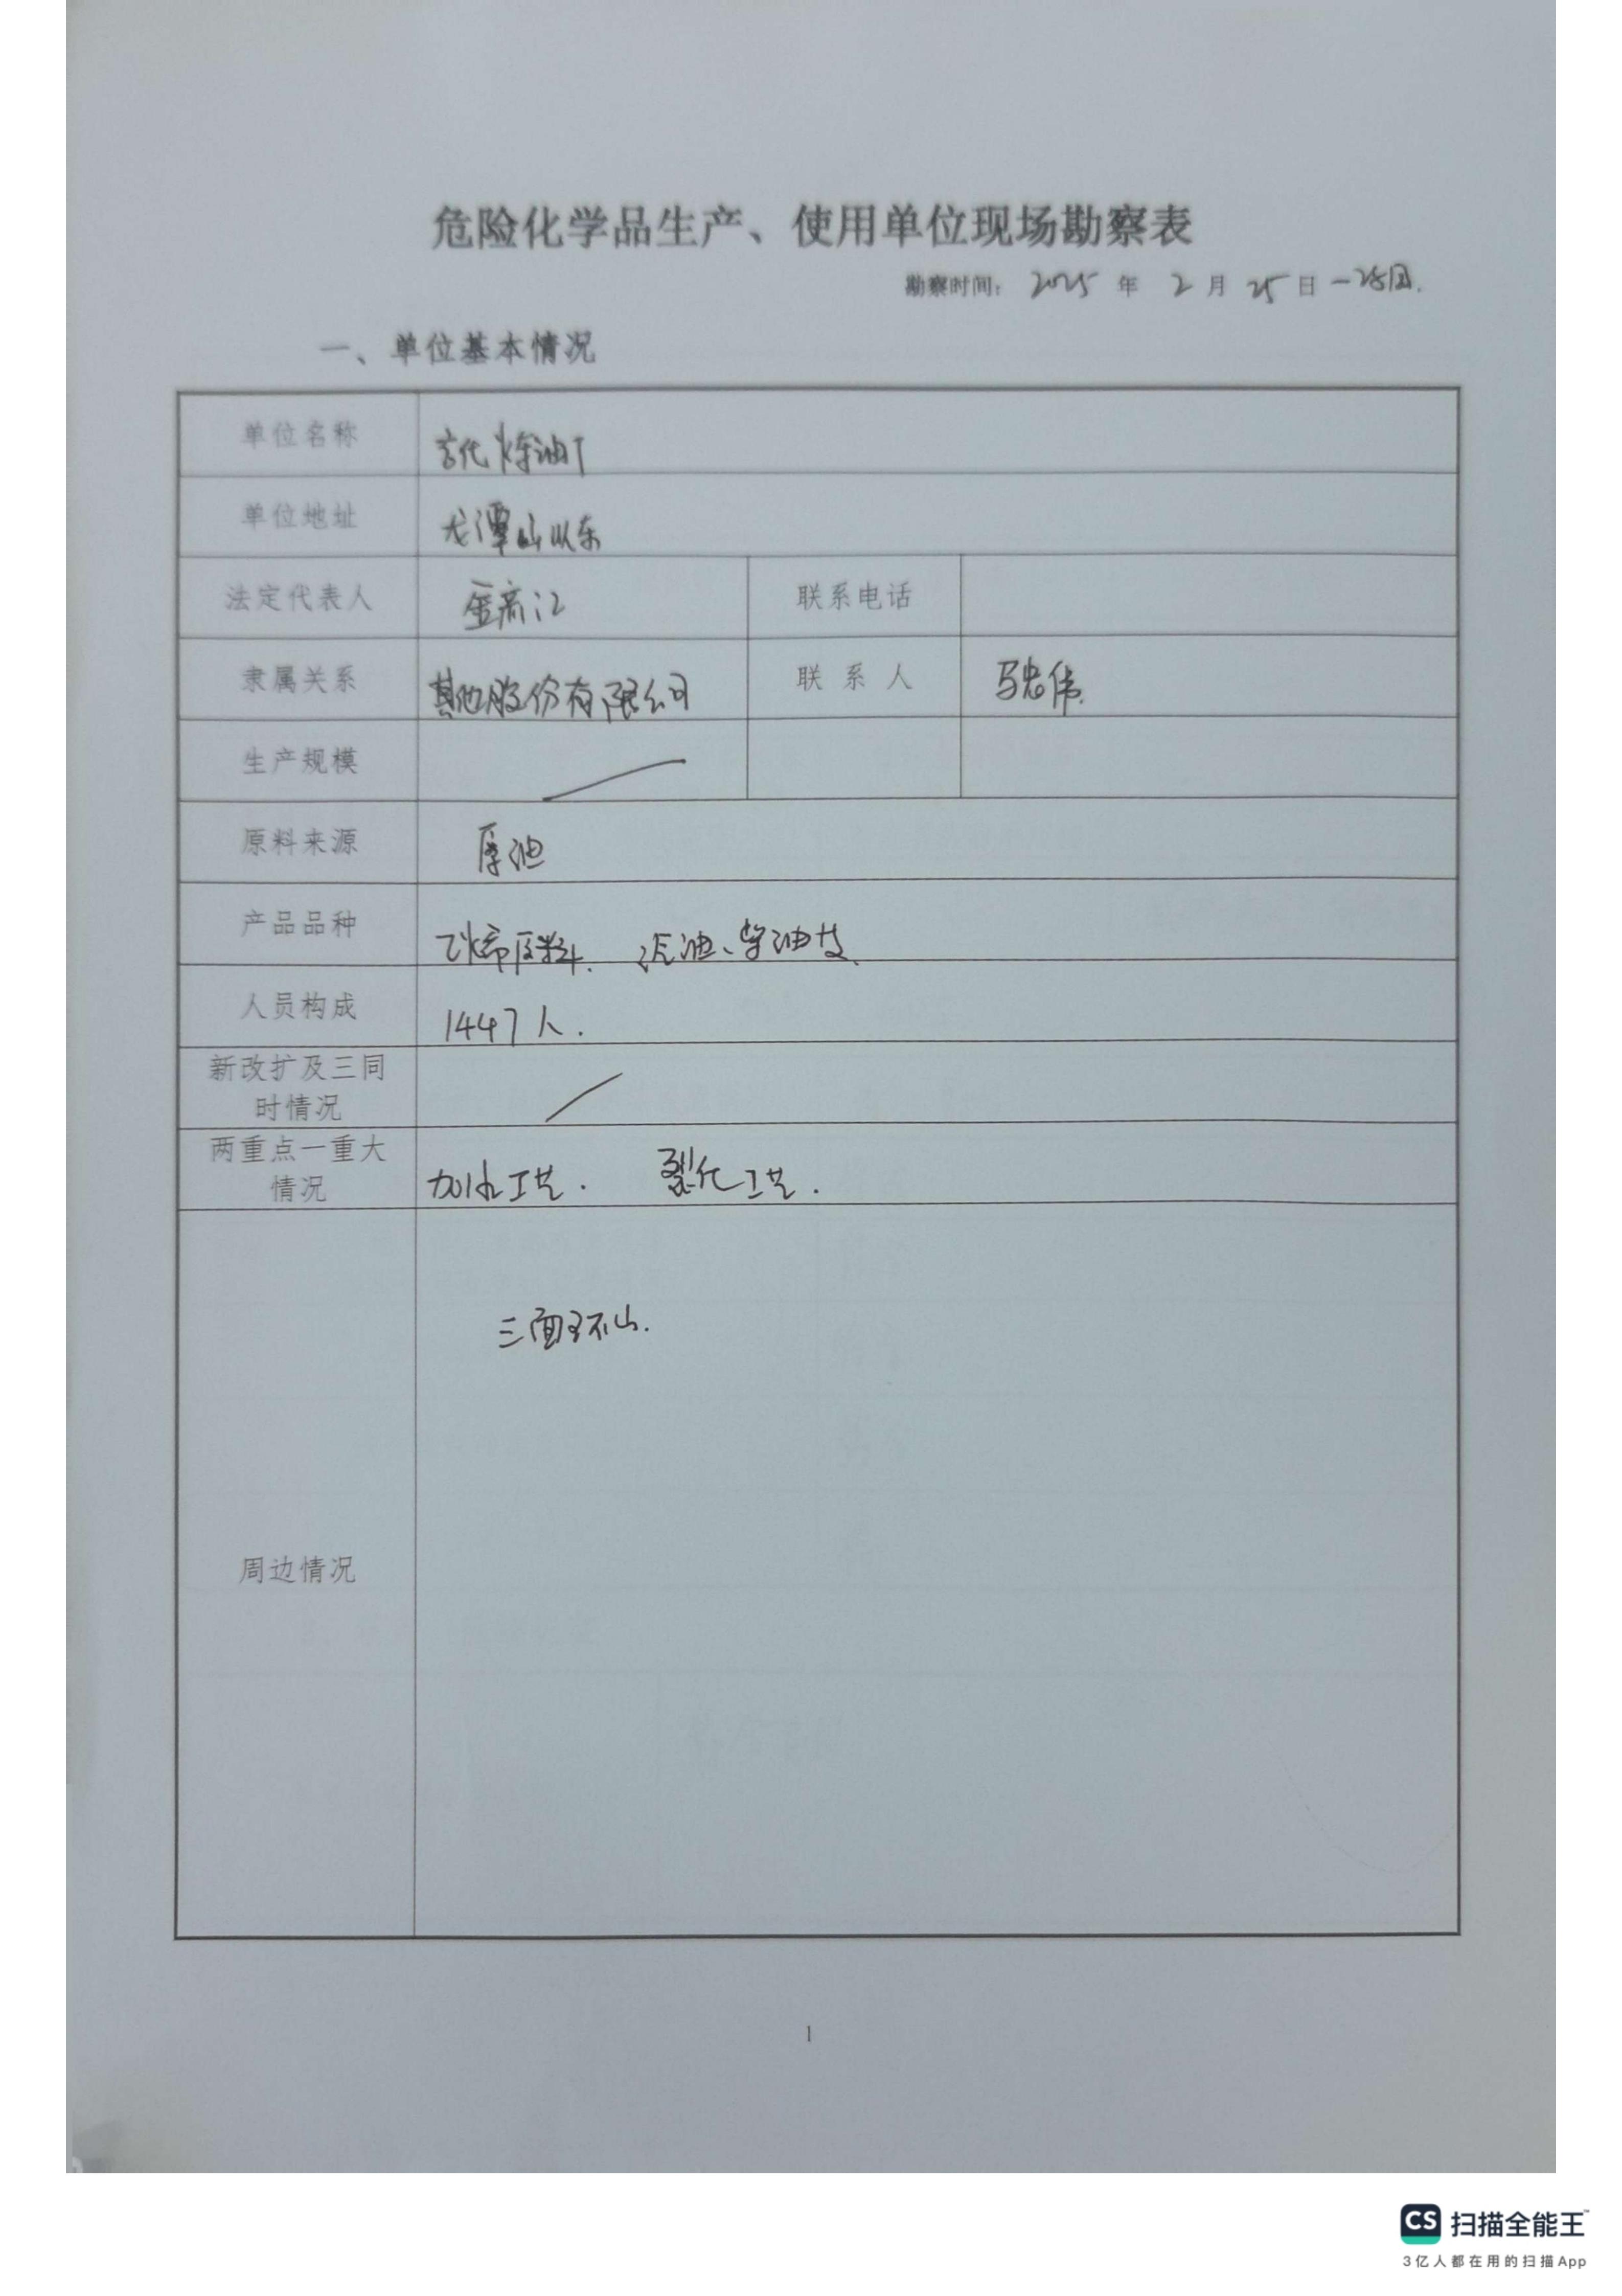 危险化学品生产、使用单位现场勘察表
勘察时间: 2025 年 2 月 25 日 -28日.
一、单位基本情况
单位名称 吉化炼油厂
单位地址 龙潭山以东
法定代表人 联系电话
隶属关系 其他股份有限公司 联系人 马忠伟
生产规模
原料来源 原油
产品品种 乙烯原料、汽油、柴油
人员构成 1447人.
新改扩及三同
时情况
两重点一重大
情况 加氢工艺. 裂化工艺.
周边情况 三面环山.
1
CS 扫描全能王
3亿人都在用的扫描App